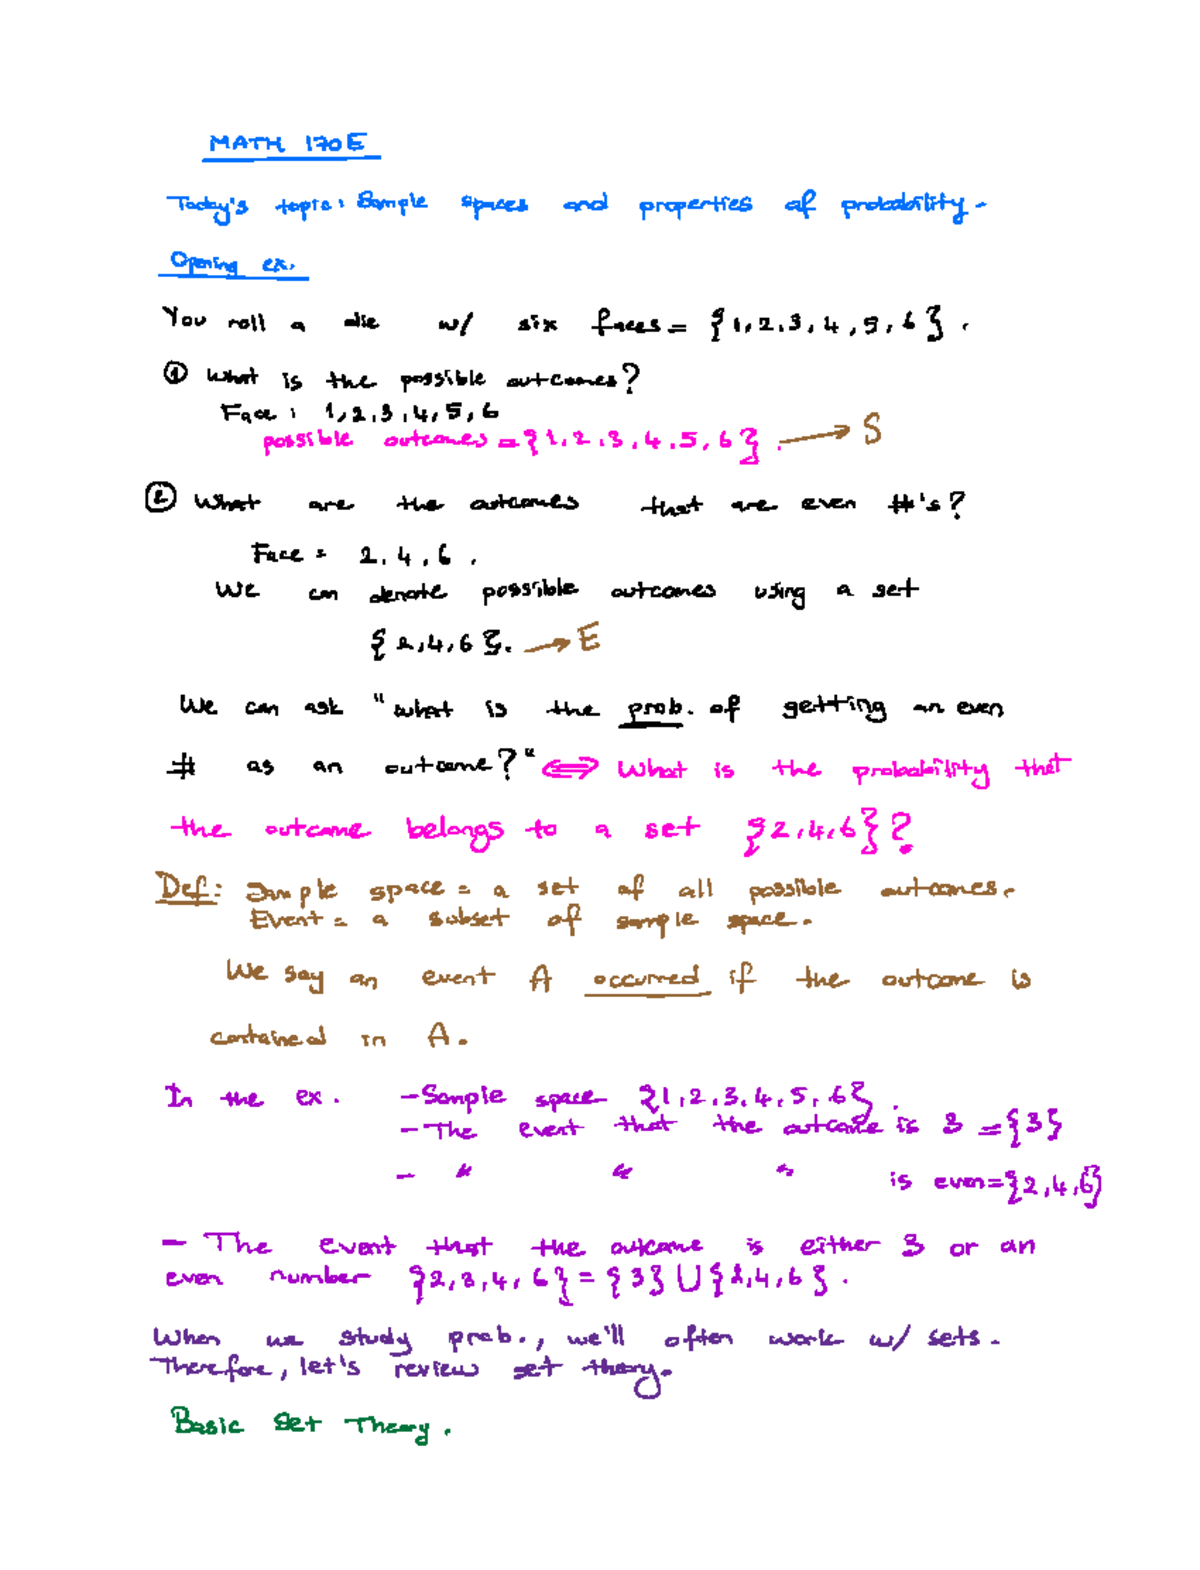 MATH 170E
Today's topic: Sample spaces and properties of probability.
Opening ex.
You roll a die w/ six faces = {1,2,3,4,5,6}.
① What is the possible outcomes?
Face: 1,2,3,4,5,6
possible outcomes = {1,2,3,4,5,6}. → S
② What are the outcomes that are even #'s?
Face = 2,4,6.
We can denote possible outcomes using a set
{2,4,6}. → E
We can ask "what is the prob. of getting an even
# as an outcome?" ⟺ What is the probability that
the outcome belongs to a set {2,4,6}?
Def: Sample space = a set of all possible outcomes.
Event = a subset of sample space.
We say an event A occurred if the outcome is
contained in A.
In the ex. - Sample space {1,2,3,4,5,6}.
- The event that the outcome is 3 = {3}
- " " " is even = {2,4,6}
- The event that the outcome is either 3 or an
even number {2,3,4,6} = {3} ∪ {2,4,6}.
When we study prob., we'll often work w/ sets.
Therefore, let's review set theory.
Basic Set Theory.